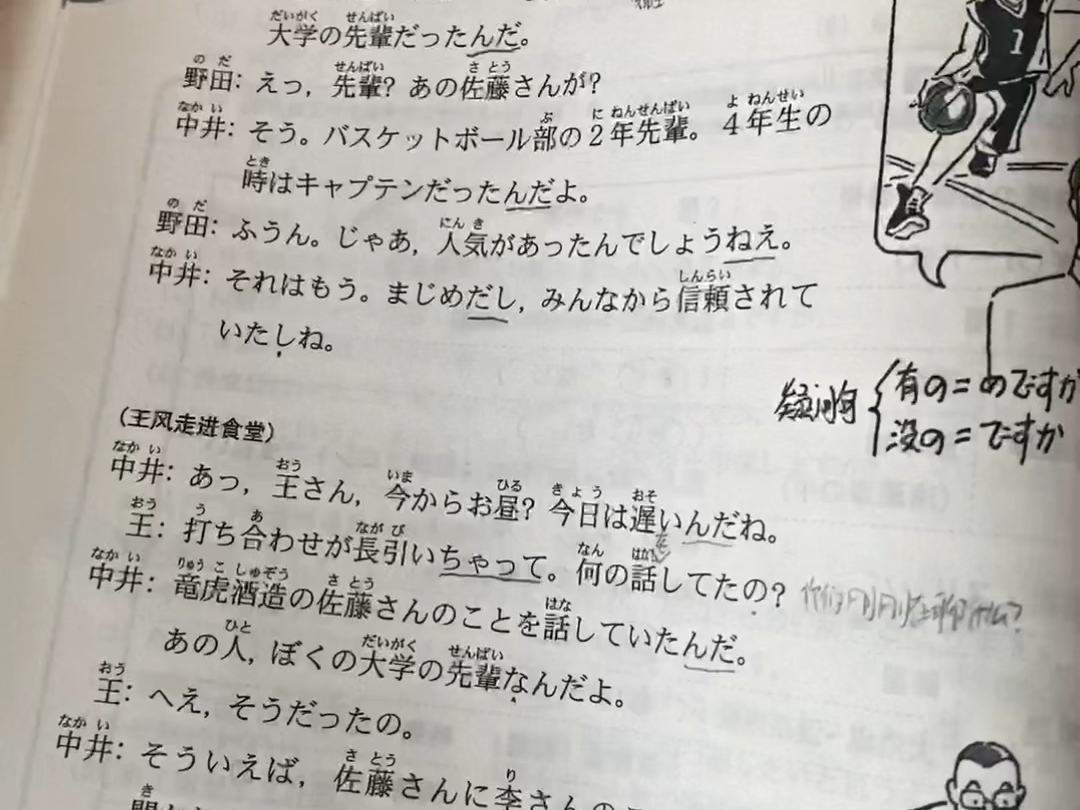 大学の先輩だったんだ。
野田：えっ，先輩？あの佐藤さんが？
中井：そう。バスケットボール部の2年先輩。4年生の
時はキャプテンだったんだよ。
野田：ふうん。じゃあ，人気があったんでしょうねえ。
中井：それはもう。まじめだし，みんなから信頼されて
いたしね。
1
有の＝のですか
没の＝ですか
(王风走进食堂)
中井：あっ，王さん，今からお昼？今日は遅いんだね。
王：打ち合わせが長引いちゃって。何の話してたの？
中井：竜虎酒造の佐藤さんのことを話していたんだ。
あの人，ぼくの大学の先輩なんだよ。
王：へえ，そうだったの。
中井：そういえば，佐藤さんに李さんの